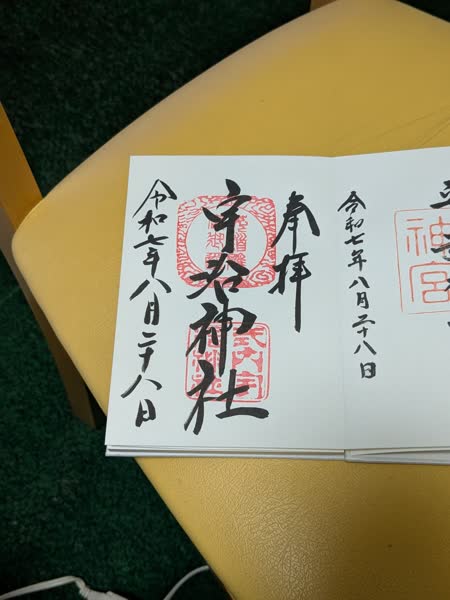 神宮
令和七年八月二十八日
奉拝
宇治神社
式内宇
令和七年八月二十八日